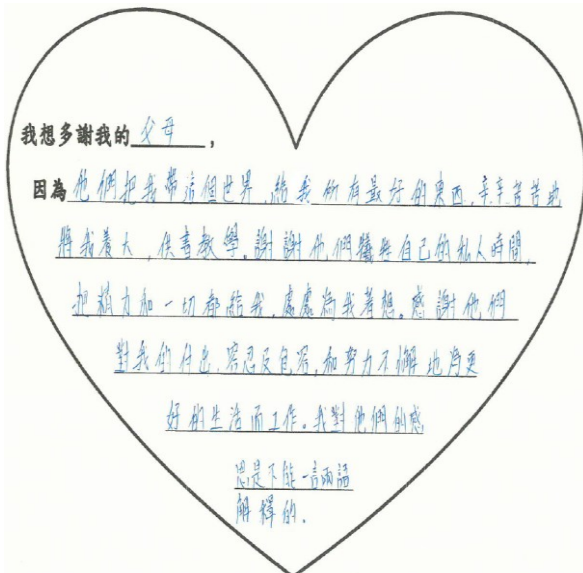 我想多謝我的父母,
因為他們把我帶這個世界,給我所有最好的東西,辛辛苦苦地
將我養大,供書教學。謝謝他們犧牲自己的私人時間,
把精力和一切都給我,處處為我著想。感謝他們
對我的付出、容忍及包容,和努力不懈地為更
好的生活而工作。我對他們的感
恩是不能一言兩語
解釋的。